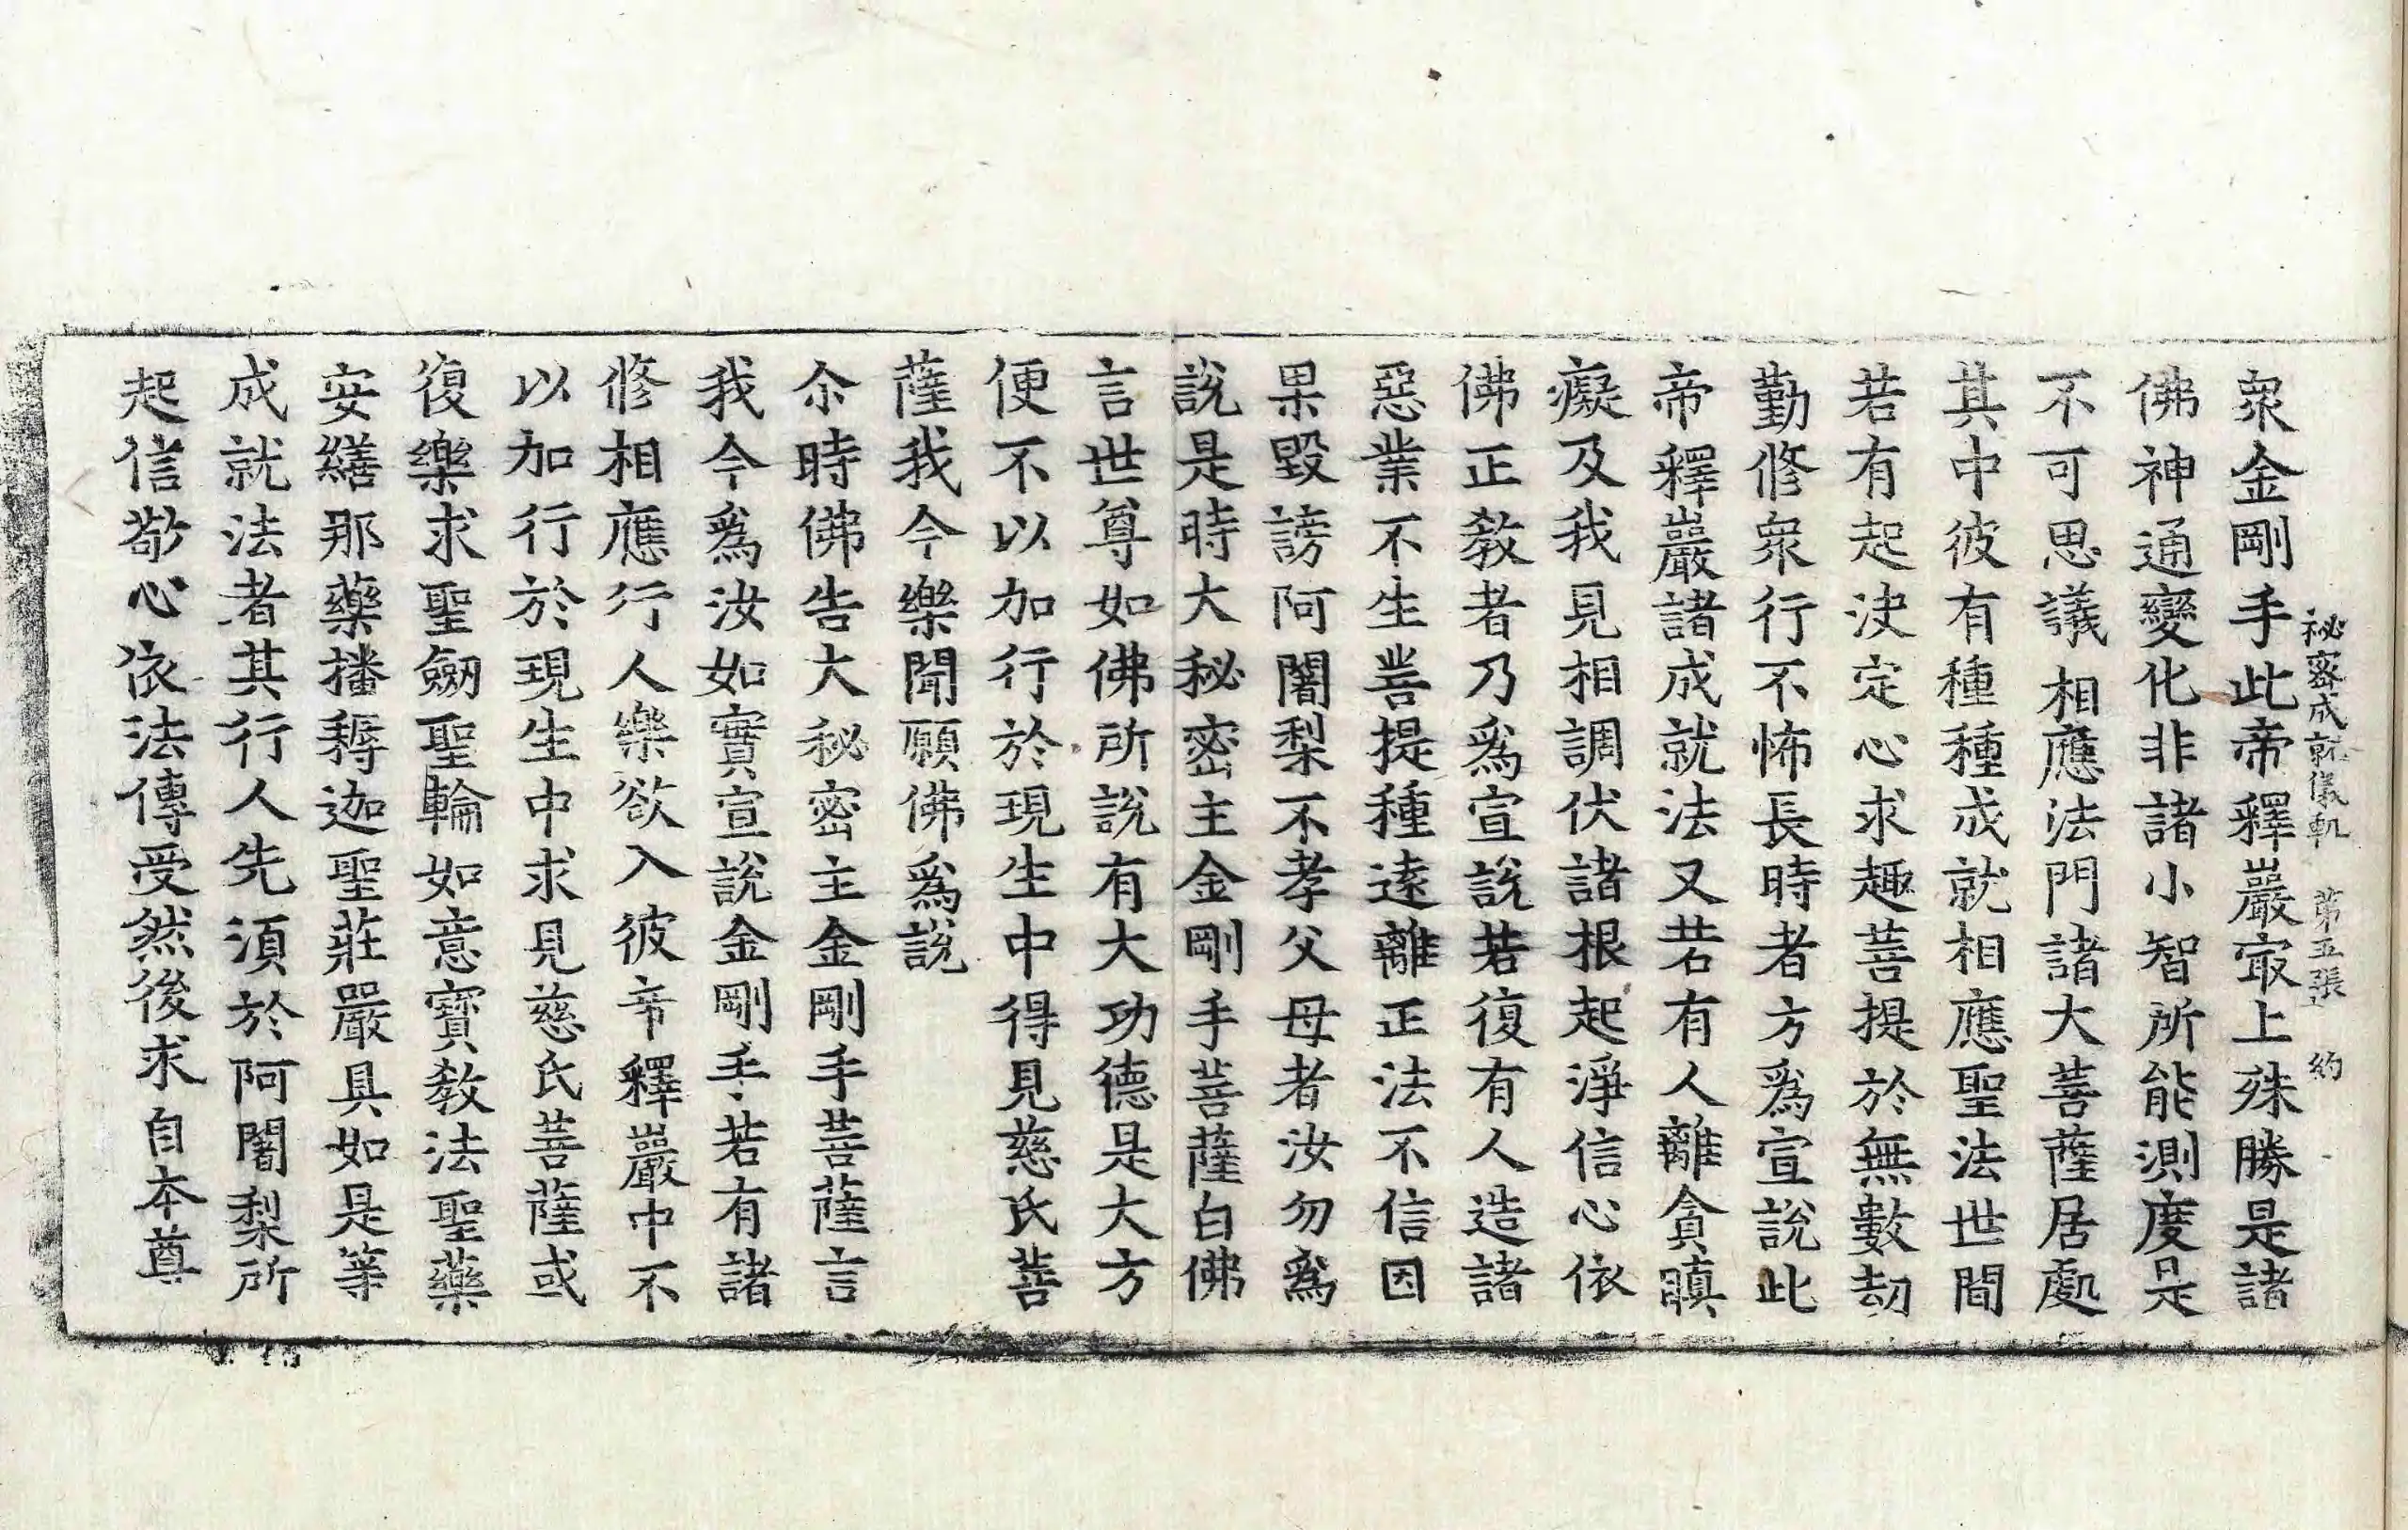 秘密成就儀軌 第五張 約
衆金剛手此帝釋巖㝡上殊勝是諸
佛神通變化非諸小智所能測度是
不可思議相應法門諸大菩薩居處
其中彼有種種成就相應聖法世間
若有起決定心求趣菩提於無數劫
勤修衆行不怖長時者方爲宣說此
帝釋巖諸成就法又若有人離貪瞋
癡及我見相調伏諸根起淨信心依
佛正教者乃爲宣說若復有人造諸
惡業不生菩提種遠離正法不信因
果毀謗阿闍梨不孝父母者汝勿爲
說是時大秘密主金剛手菩薩白佛
言世尊如佛所說有大功德是大方
便不以加行於現生中得見慈氏菩
薩我今樂聞願佛爲說
尒時佛告大秘密主金剛手菩薩言
我今爲汝如實宣說金剛手若有諸
修相應行人樂欲入彼帝釋巖中不
以加行於現生中求見慈氏菩薩或
復樂求聖劒聖輪如意寶教法聖藥
安繕那藥播褥迦聖莊嚴具如是等
成就法者其行人先須於阿闍梨所
起信敬心依法傳受然後求自本尊